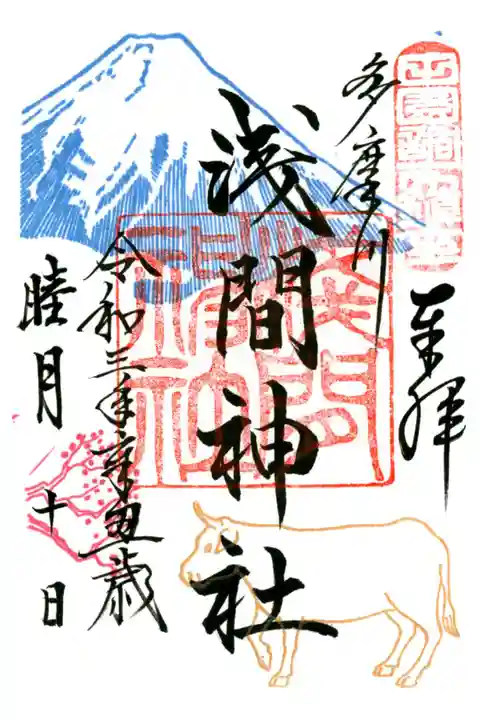 奉拝
多摩川
浅間神社
令和三年辛丑歳
睦月十日